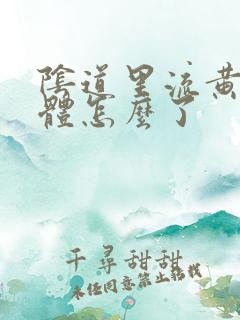 陰道里流黃
體怎麼了
千尋甜甜
未经同意禁止搭载